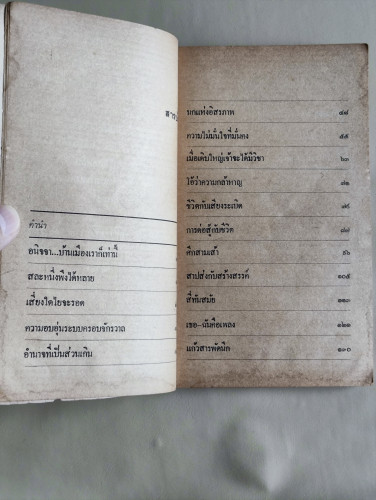 สาร
คำนำ
อนิจจา...บ้านเมืองเราก็เท่านี้
สละหนึ่งพึงได้หลาย
เสี่ยงใดใยจะรอด
ความอบอุ่นระบบครอบจักรวาล
อำนาจที่เป็นส่วนเกิน
บทแห่งอิสรภาพ ๔๗
ความไม่มั่นใจที่มั่นคง ๕๕
เมื่อเติบใหญ่เจ้าจะได้มีวิชา
โอ้ว่าความกล้าหาญ
ชีวิตกับเสียงระเบิด
การต่อสู้กับชีวิต
ศึกสามเส้า
สาปส่งกับสร้างสรรค์ ๑๐๕
สี่ทันสมัย ๑๑๓
เธอ-ฉันคือเพลง ๑๒๑
แก้วสารพัดนึก ๑๓๐